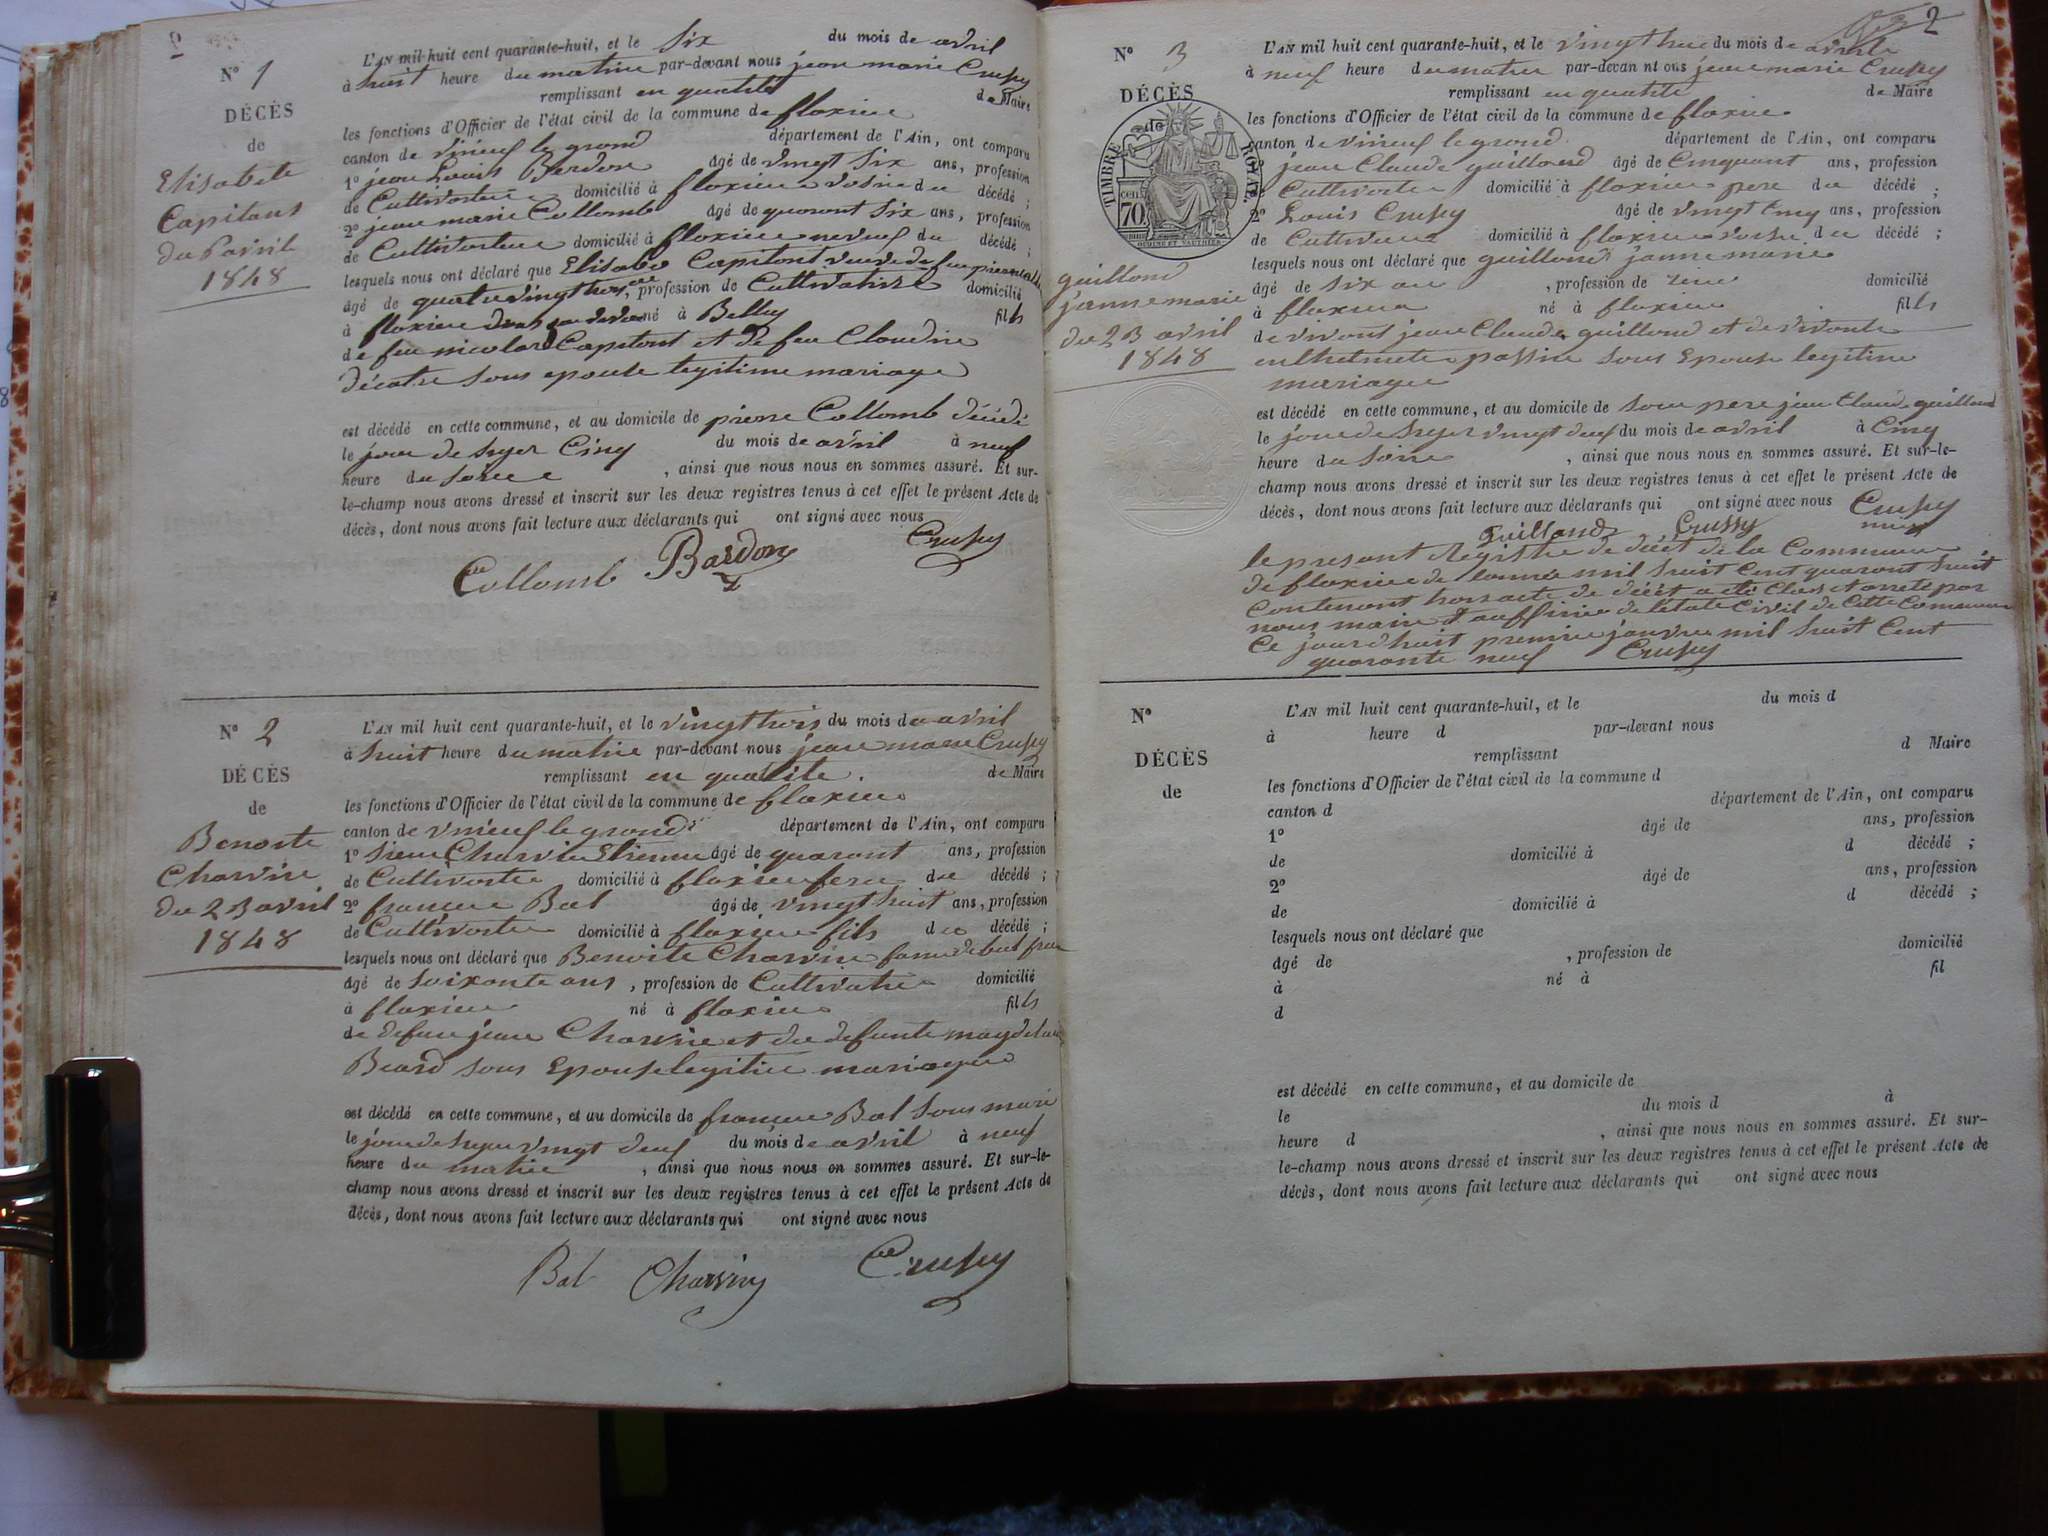 N° 1
DÉCÈS
de
Elisabete
Capitant
du 6 avril
1848
L'AN mil huit cent quarante-huit, et le Six du mois de avril
à huit heure du matin par-devant nous jean marie Crussy
remplissant en qualité de Maire
les fonctions d'Officier de l'état civil de la commune de floxieu
canton de virieux le grand département de l'Ain, ont comparu
1° jean Louis Bardon âgé de vingt Six ans, profession
de Cultivateur domicilié à floxieu voisin du décédé ;
2° jean marie Collomb âgé de quarant Six ans, profession
de Cultivateur domicilié à floxieu neveuf du décédé ;
lesquels nous ont déclaré que Elisabe Capitant veuve de feu pierre
âgé de quatrevingt , profession de Cultivatrise domicilié
à floxieu né à Belley fil
de feu nicolas Capitant et de feu Claudine
Décotre sous epouse legitime mariage
est décédé en cette commune, et au domicile de pierre Collomb décédé
le jour de hyer Cinq du mois de avril à neuf
heure du soire , ainsi que nous nous en sommes assuré. Et sur-
le-champ nous avons dressé et inscrit sur les deux registres tenus à cet effet le présent Acte de
décès, dont nous avons fait lecture aux déclarants qui ont signé avec nous
Collomb Bardon Crussy
N° 2
DÉCÈS
de
Benoite
Charvin
du 23 avril
1848
L'AN mil huit cent quarante-huit, et le vingt trois du mois de avril
à huit heure du matin par-devant nous jean marie Crussy
remplissant en qualite de Maire
les fonctions d'Officier de l'état civil de la commune de floxieu
canton de virieuf le grand département de l'Ain, ont comparu
1° Charvin Etienne âgé de quarant ans, profession
de Cultivateur domicilié à floxieu frere du décédé ;
2° Bal âgé de vingt huit ans, profession
de Cultivateur domicilié à floxieu fils du décédé ;
lesquels nous ont déclaré que Benoite Charvin
âgé de soixante ans , profession de Cultivatrice domicilié
à floxieu né à floxieu fil
de defun jean Charvin et de defunte magdelaine
Beard sous Epouse legitime mariage
est décédé en cette commune, et au domicile de Bal sous mari
le jour de hyer vingt deuf du mois de avril à neuf
heure du matin , ainsi que nous nous en sommes assuré. Et sur-le-
champ nous avons dressé et inscrit sur les deux registres tenus à cet effet le présent Acte de
décès, dont nous avons fait lecture aux déclarants qui ont signé avec nous
Bal Charvin Crussy
2
N° 3
DÉCÈS
de
TIMBRE ROYAL
70 cen
guilland
janne marie
du 23 avril
1848
L'AN mil huit cent quarante-huit, et le vingt du mois de avril
à neuf heure du matin par-devant nous jean marie Crussy
remplissant en qualite de Maire
les fonctions d'Officier de l'état civil de la commune de floxieu
canton de virieuf le grand département de l'Ain, ont comparu
1° jean Claude guilland âgé de Cinquant ans, profession
Cultivateur domicilié à floxieu pere du décédé ;
2° Louis Crussy âgé de vingt Cinq ans, profession
de Cultivateur domicilié à floxieu voisin du décédé ;
lesquels nous ont déclaré que guilland janne marie
âgé de six an , profession de domicilié
à floxieu né à floxieu fil
de vivant jean Claude guilland et de vivante
passin sous Epouse legitime
mariage
est décédé en cette commune, et au domicile de sous pere jean Claude guilland
le jour de hyer vingt deuf du mois de avril à Cinq
heure du soire , ainsi que nous nous en sommes assuré. Et sur-le-
champ nous avons dressé et inscrit sur les deux registres tenus à cet effet le présent Acte de
décès, dont nous avons fait lecture aux déclarants qui ont signé avec nous Crussy
Guilland Crussy
le present Registre de décèt de la Commune
de floxieu de lannée mil huit Cent quarant huit
Contenant trois acte de décèt a été Clos et arreté par
nous maire de létate Civil de Cette Commune
Ce jourd'huit premier janvier mil huit Cent
quarante neuf Crussy
N°
DÉCÈS
de
L'AN mil huit cent quarante-huit, et le du mois d
à heure d par-devant nous
remplissant d Maire
les fonctions d'Officier de l'état civil de la commune d
canton d département de l'Ain, ont comparu
1° âgé de ans, profession
de domicilié à d décédé ;
2° âgé de ans, profession
de domicilié à d décédé ;
lesquels nous ont déclaré que
âgé de , profession de domicilié
à né à fil
d
est décédé en cette commune, et au domicile de
le du mois d à
heure d , ainsi que nous nous en sommes assuré. Et sur-
le-champ nous avons dressé et inscrit sur les deux registres tenus à cet effet le présent Acte de
décès, dont nous avons fait lecture aux déclarants qui ont signé avec nous